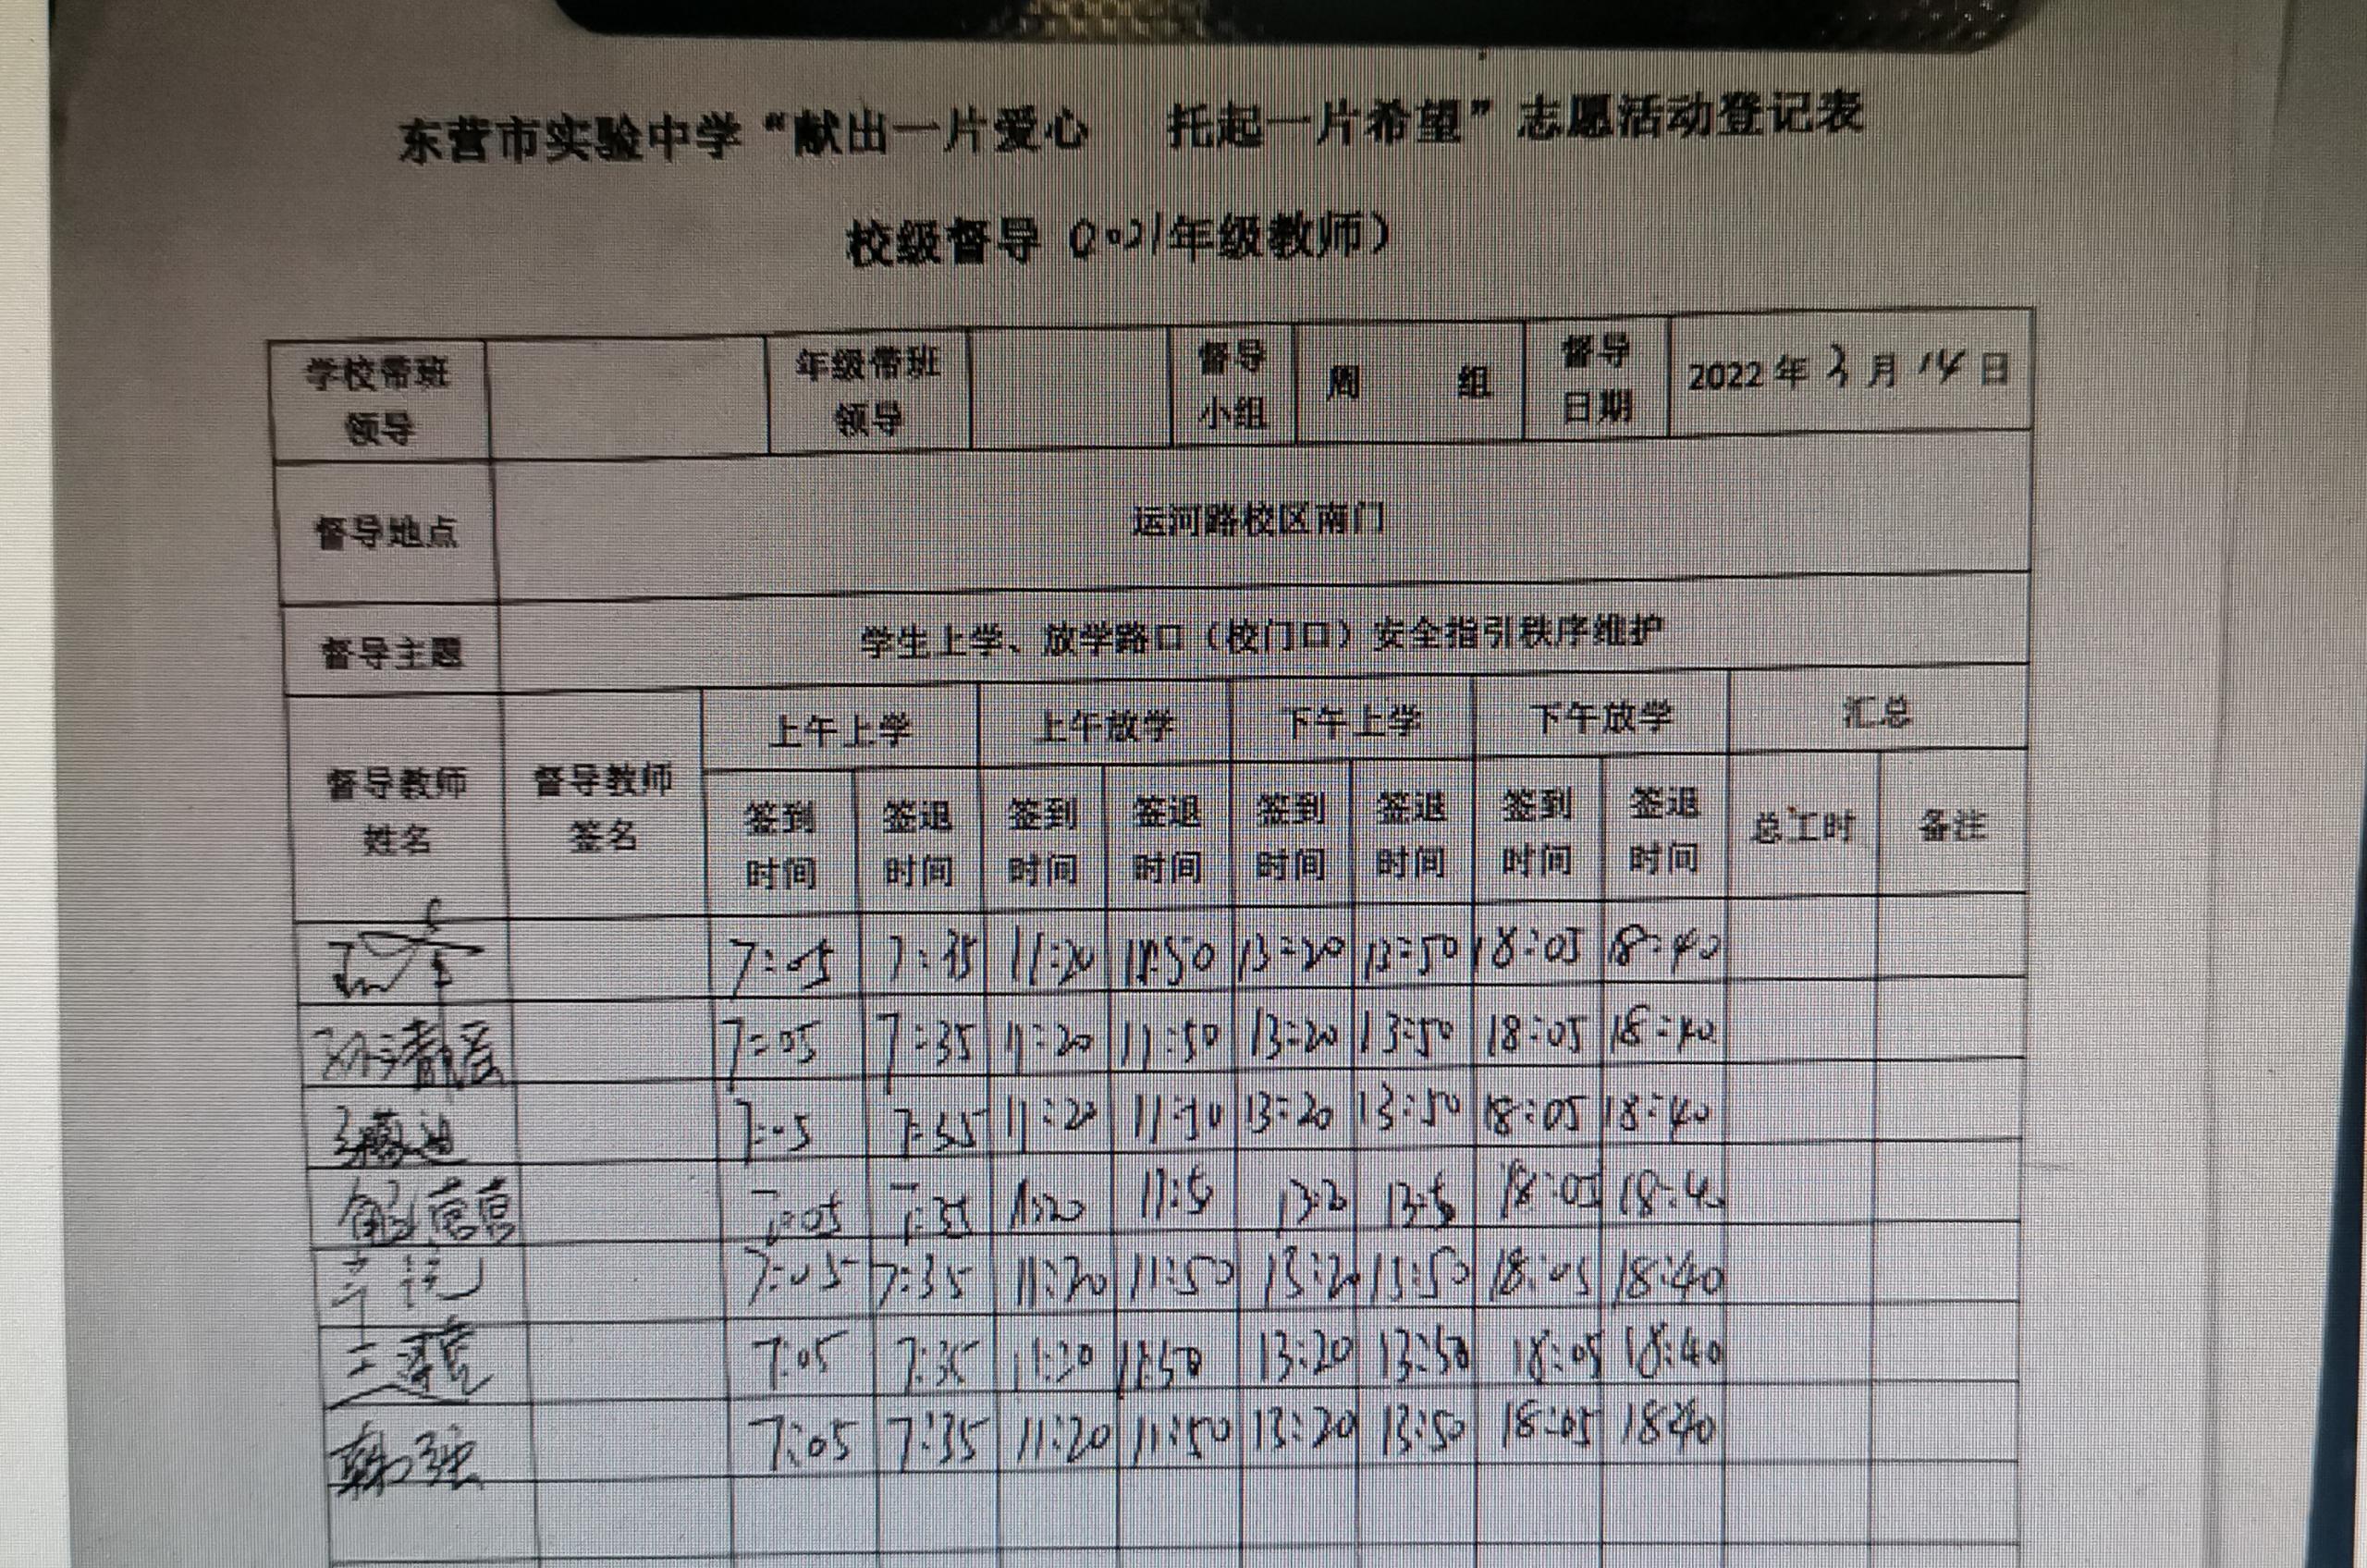 东营市实验中学“献出一片爱心 托起一片希望”志愿活动登记表
校级督导（2021年级教师）
学校带班领导 年级带班领导 督导小组 周 组 督导日期 2022年3月14日
督导地点 运河路校区南门
督导主题 学生上学、放学路口（校门口）安全指引秩序维护
督导教师姓名 督导教师签名 上午上学 上午放学 下午上学 下午放学 汇总
签到时间 签退时间 签到时间 签退时间 签到时间 签退时间 签到时间 签退时间 总工时 备注
7:05 7:35 11:20 11:50 13:20 13:50 18:05 18:40
7:05 7:35 11:20 11:50 13:20 13:50 18:05 18:40
7:05 7:35 11:20 11:50 13:20 13:50 18:05 18:40
7:05 7:35 11:20 11:5 13:2 13:5 18:05 18:40
7:05 7:35 11:20 11:50 13:20 13:50 18:05 18:40
7:05 7:35 11:20 11:50 13:20 13:50 18:05 18:40
韩强 7:05 7:35 11:20 11:50 13:20 13:50 18:05 18:40